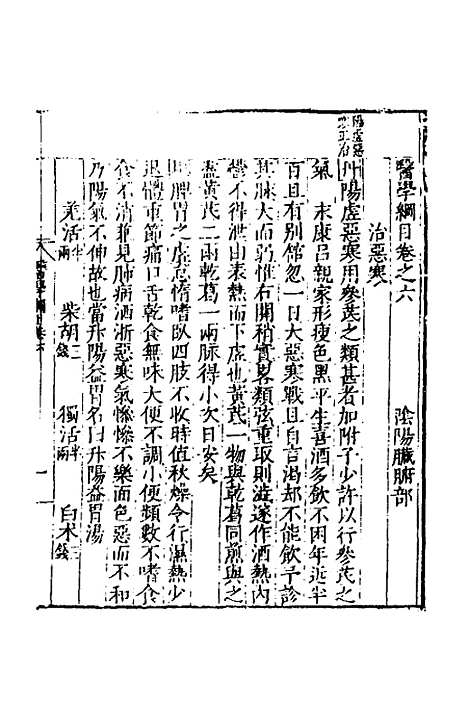 醫學綱目卷之六　陰陽臟腑部
治惡寒
陽虛惡
寒正治
丹陽虛惡寒用參芪之類甚者加附子少許以行參芪之
氣　末康呂親家形瘦色黑平生喜酒多飲不困年近半
百且有別館忽一日大惡寒戰且自言渴却不能飲予診
其脉大而弱惟右關稍實畧類弦重取則澁遂作酒熱內
鬱不得泄由表熱而下虛也黃芪一物與乾葛同煎與之
盡黃芪二兩乾葛一兩脉得小次日安矣
脾胃之虛怠惰嗜臥四肢不收時值秋燥令行濕熱少
退體重節痛口舌乾食無味大便不調小便頻數不嗜食
食不消兼見肺病洒淅惡寒氣慘慘不樂面色惡而不和
乃陽氣不伸故也當升陽益胃名曰升陽益胃湯
羌活半兩　柴胡三錢　獨活半兩　白术三錢